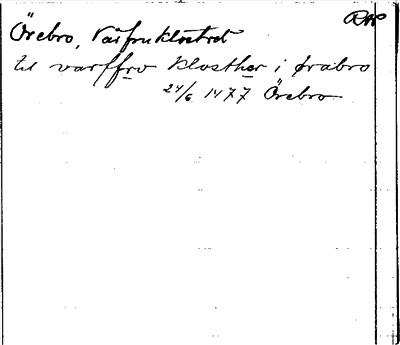 RAP
Örebro, Vårfruklostret
til varffro klosther i ørabro
24/6 1477 Örebro